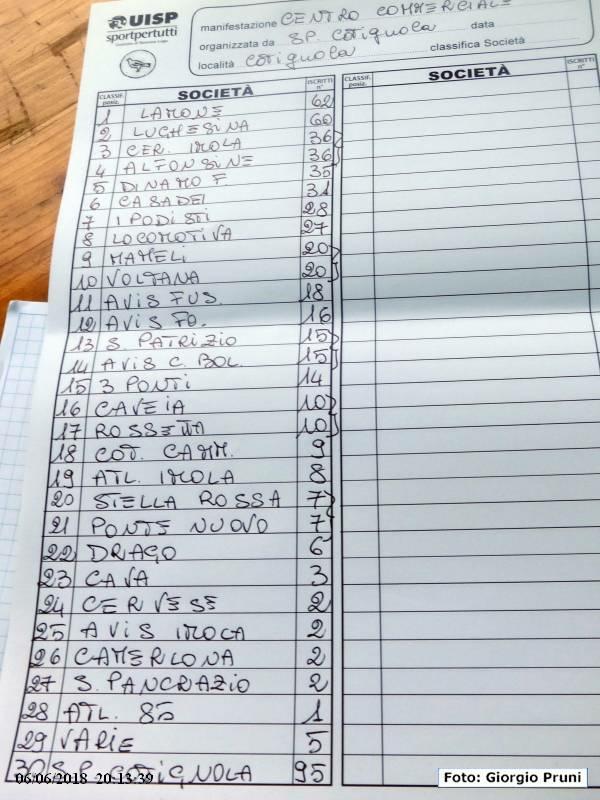 UISP
sportpertutti
manifestazione CENTRO COMMERCIALE
organizzata da SP. Cotignola data
località Cotignola classifica Società
CLASSIF. posiz. SOCIETÀ ISCRITTI n° CLASSIF. posiz. SOCIETÀ ISCRITTI n°
1 LAMONE 62
2 LUGHESINA 60
3 CER. IMOLA 36
4 ALFONSINE 36
5 DINAMO F. 35
6 CASADEI 31
7 I PODISTI 28
8 LOCOMOTIVA 27
9 MAMELI 20
10 VOLTANA 20
11 AVIS FUS. 18
12 AVIS FO. 16
13 S. PATRIZIO 15
14 AVIS C. BOL. 15
15 3 PONTI 14
16 CAVEIA 10
17 ROSSETTA 10
18 COT. CAMM. 9
19 ATL. IMOLA 8
20 STELLA ROSSA 7
21 PONTE NUOVO 7
22 DRAGO 6
23 CAVA 3
24 CERVESE 2
25 AVIS IMOLA 2
26 CAMERLONA 2
27 S. PANCRAZIO 2
28 ATL. 85 1
29 VARIE 5
30 S.P. COTIGNOLA 95
06/06/2018 20:13:39
Foto: Giorgio Pruni